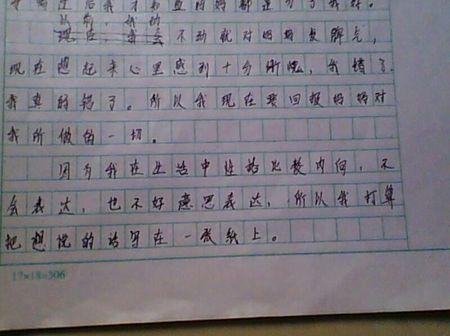 以前，我动
不动就对妈妈发脾气，
现在想起来心里感到十分惭愧，我错了
我真的错了。所以我现在要回报妈妈对
我所做的一切。
因为我在生活中性格比较内向，不
会表达，也不好意思表达，所以我打算
把想说的话写在一张纸上。
17×18=306